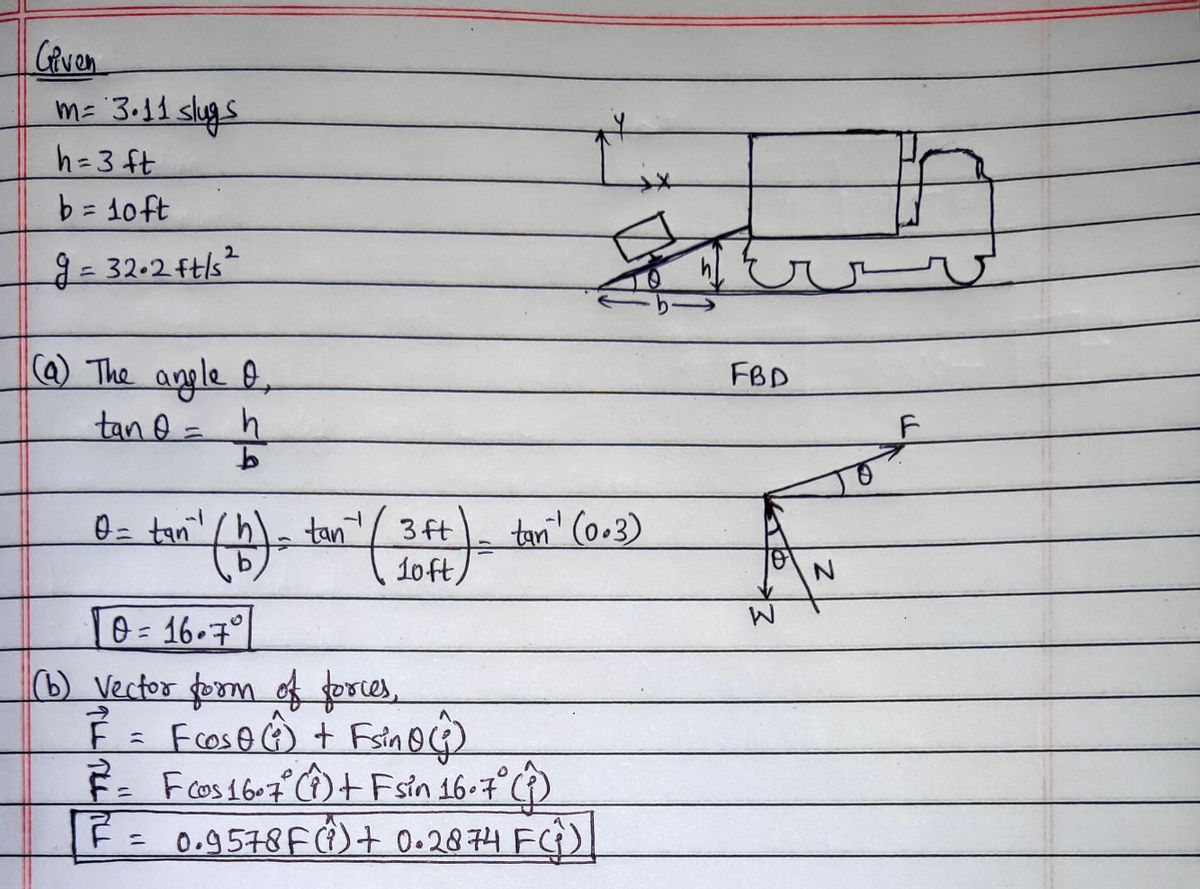 Given
m = 3.11 slugs
h = 3 ft
b = 10 ft
g = 32.2 ft/s²
Y
X
θ
h
b
(a) The angle θ,
tan θ = h/b
θ = tan⁻¹ (h/b) = tan⁻¹ (3 ft/10 ft) = tan⁻¹ (0.3)
θ = 16.7°
FBD
F
θ
θ
N
W
(b) Vector form of forces,
F⃗ = F cos θ (î) + F sin θ (ĵ)
F⃗ = F cos 16.7° (î) + F sin 16.7° (ĵ)
F⃗ = 0.9578 F (î) + 0.2874 F (ĵ)